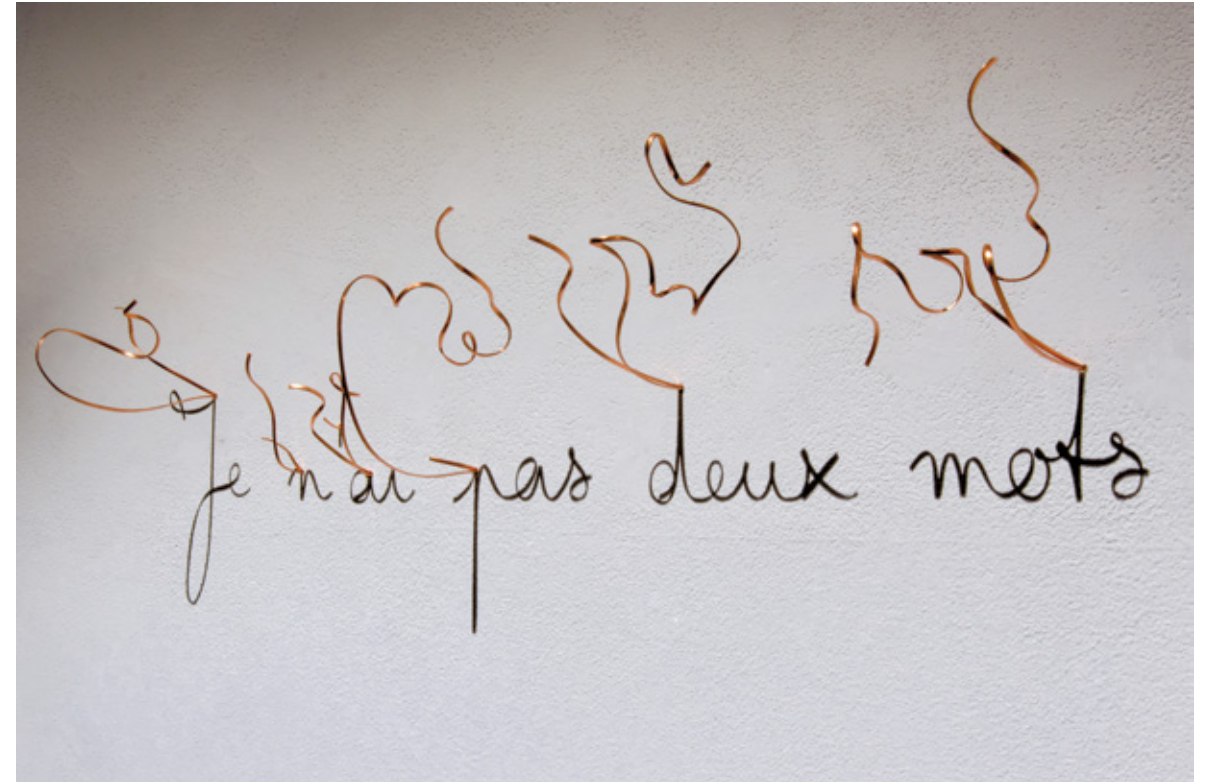 je n'ai pas deux mots